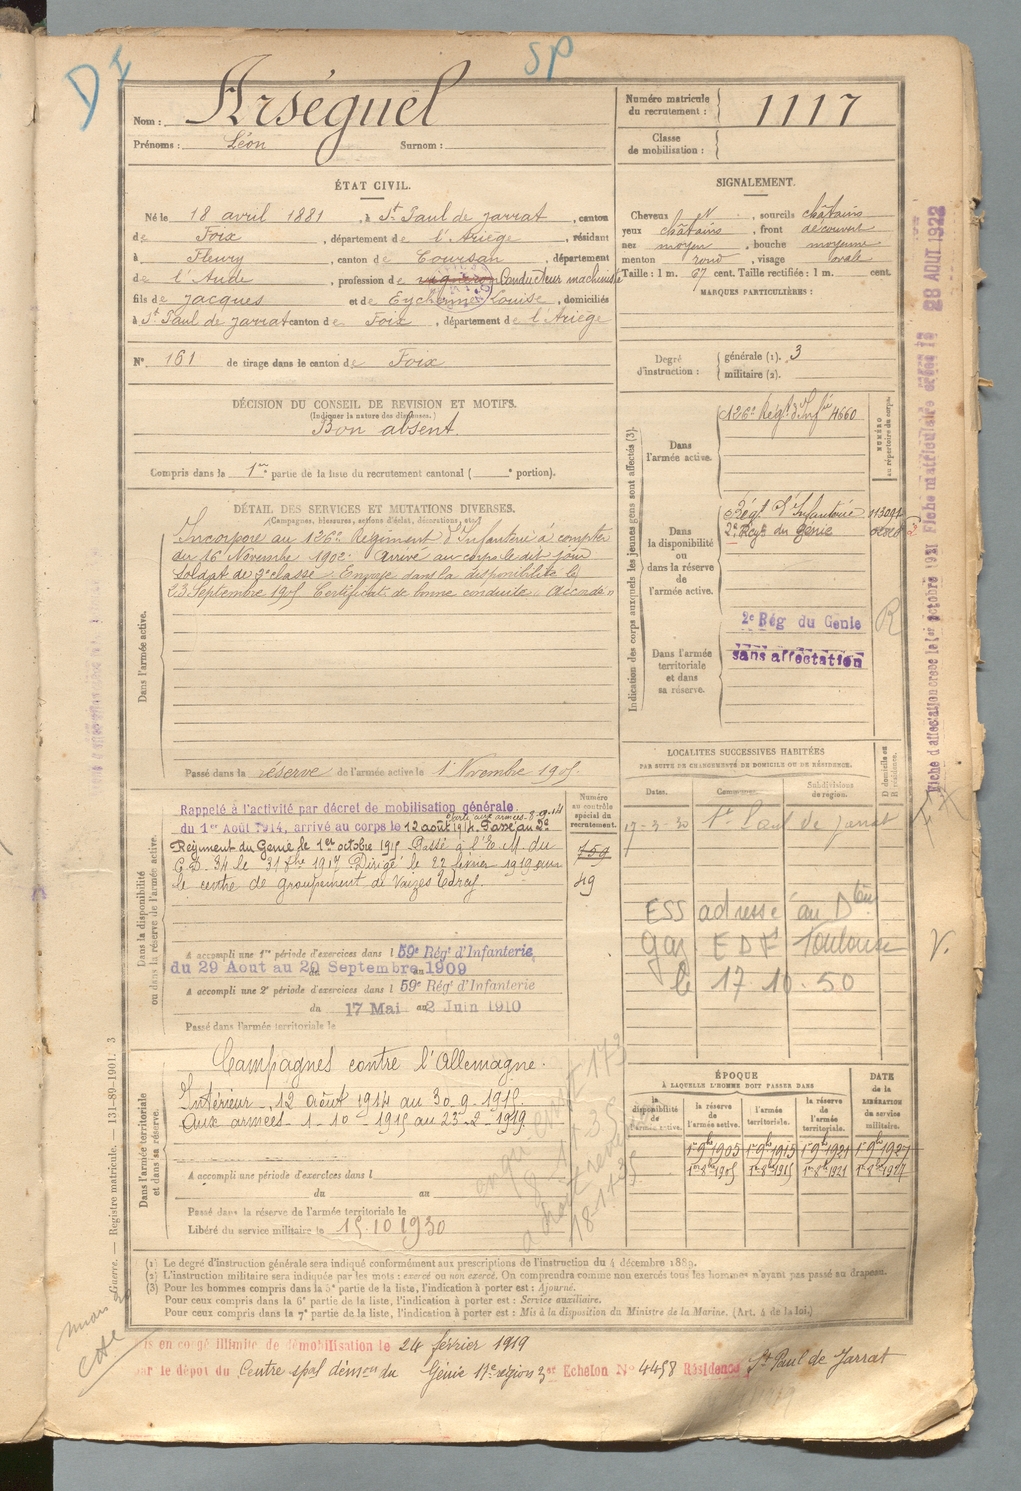 DI
SP
Nom : Arséguel
Prénoms : Léon Surnom :
Numéro matricule du recrutement : 1117
Classe de mobilisation :
ÉTAT CIVIL.
Né le 18 avril 1881, à St Paul de Jarrat, canton
de Foix, département de l'Ariège, résidant
à Fleury, canton de Coursan, département
de l'Aude, profession de vigneron Conducteur machiniste
fils de Jacques et de Eychenne Louise, domiciliés
à St Paul de Jarrat canton de Foix, département de l'Ariège
N° 161 de tirage dans le canton de Foix
SIGNALEMENT.
Cheveux N, sourcils châtains
yeux châtains, front découvert
nez moyen, bouche moyenne
menton rond, visage ovale
Taille : 1 m. 67 cent. Taille rectifiée : 1 m. cent.
MARQUES PARTICULIÈRES :
Degré d'instruction : générale (1). 3
militaire (2).
DÉCISION DU CONSEIL DE REVISION ET MOTIFS.
(Indiquer la nature des dispenses.)
Bon absent
Compris dans la 1re partie de la liste du recrutement cantonal ( e portion).
DÉTAIL DES SERVICES ET MUTATIONS DIVERSES.
(Campagnes, blessures, actions d'éclat, décorations, etc.)
Dans l'armée active.
Incorporé au 126e Régiment d'Infanterie à compter
du 16 Novembre 1902. Arrivé au corps le dit jour
soldat de 2e classe. Envoyé dans la disponibilité le
23 Septembre 1905 Certificat de bonne conduite "Accordé"
Passé dans la réserve de l'armée active le 1 Novembre 1905
Indication des corps auxquels les jeunes gens sont affectés (3).
NUMÉRO au répertoire du corps.
Dans l'armée active.
126e Régt d'Infie 4660
Dans la disponibilité ou dans la réserve de l'armée active.
Régt d'Infanterie
2e Régt du Génie
2e Rég du Genie
R
Dans l'armée territoriale et dans sa réserve.
sans affectation
Fiche d'affectation créée le 1er octobre 1921 Fiche matriculaire créée le 28 AOUT 1922
Dans la disponibilité ou dans la réserve de l'armée active.
Rappelé à l'activité par décret de mobilisation générale.
du 1er Août 1914, arrivé au corps le 12 août 1914. Passé au 2e
Régiment du Genie le 1er octobre 1915 Passé à l'E. M. du
le 22 février 1919 sur
le centre de groupement de
Numéro au contrôle spécial du recrutement.
759
49
A accompli une 1re période d'exercices dans l 59e Régt d'Infanterie
du 29 Aout au 20 Septembre 1909
A accompli une 2e période d'exercices dans l 59e Rég d'Infanterie
du 17 Mai au 2 Juin 1910
Passé dans l'armée territoriale le
LOCALITÉS SUCCESSIVES HABITÉES
PAR SUITE DE CHANGEMENTS DE DOMICILE OU DE RÉSIDENCE.
Dates. Communes. Subdivisions de région. D domicile ou R résidence.
17-3-30 St Paul de Jarrat
ESS adresse au
gaz EDF Toulouse V.
le 17.10.50
Dans l'armée territoriale et dans sa réserve.
Campagnes contre l'Allemagne.
Intérieur 12 août 1914 au 30-9-1915
Aux armées 1-10-1915 au 23-2-1919
A accompli une période d'exercices dans l
du au
Passé dans la réserve de l'armée territoriale le
Libéré du service militaire le 15.10 1930
ÉPOQUE
À LAQUELLE L'HOMME DOIT PASSER DANS
la disponibilité de l'armée active. la réserve de l'armée active. l'armée territoriale. la réserve de l'armée territoriale. DATE de la LIBÉRATION du service militaire.
1er 9bre 1905 1er 9bre 1915 1er 9bre 1921 1er 9bre 1927
1er 8bre 1905 1er 8bre 1915 1er 8bre 1921 1er 8bre 1927
(1) Le degré d'instruction générale sera indiqué conformément aux prescriptions de l'instruction du 4 décembre 1889.
(2) L'instruction militaire sera indiquée par les mots : exercé ou non exercé. On comprendra comme non exercés tous les hommes n'ayant pas passé au drapeau.
(3) Pour les hommes compris dans la 5e partie de la liste, l'indication à porter est : Ajourné.
Pour ceux compris dans la 6e partie de la liste, l'indication à porter est : Service auxiliaire.
Pour ceux compris dans la 7e partie de la liste, l'indication à porter est : Mis à la disposition du Ministre de la Marine. (Art. 4 de la loi.)
Guerre. — Registre matricule. — 131-89-1901. 3
is en congé illimité de démobilisation le 24 février 1919
ar le dépot du Centre spal démon du Génie 17e région 3er Echelon N° 4458 Résidence St Paul de Jarrat